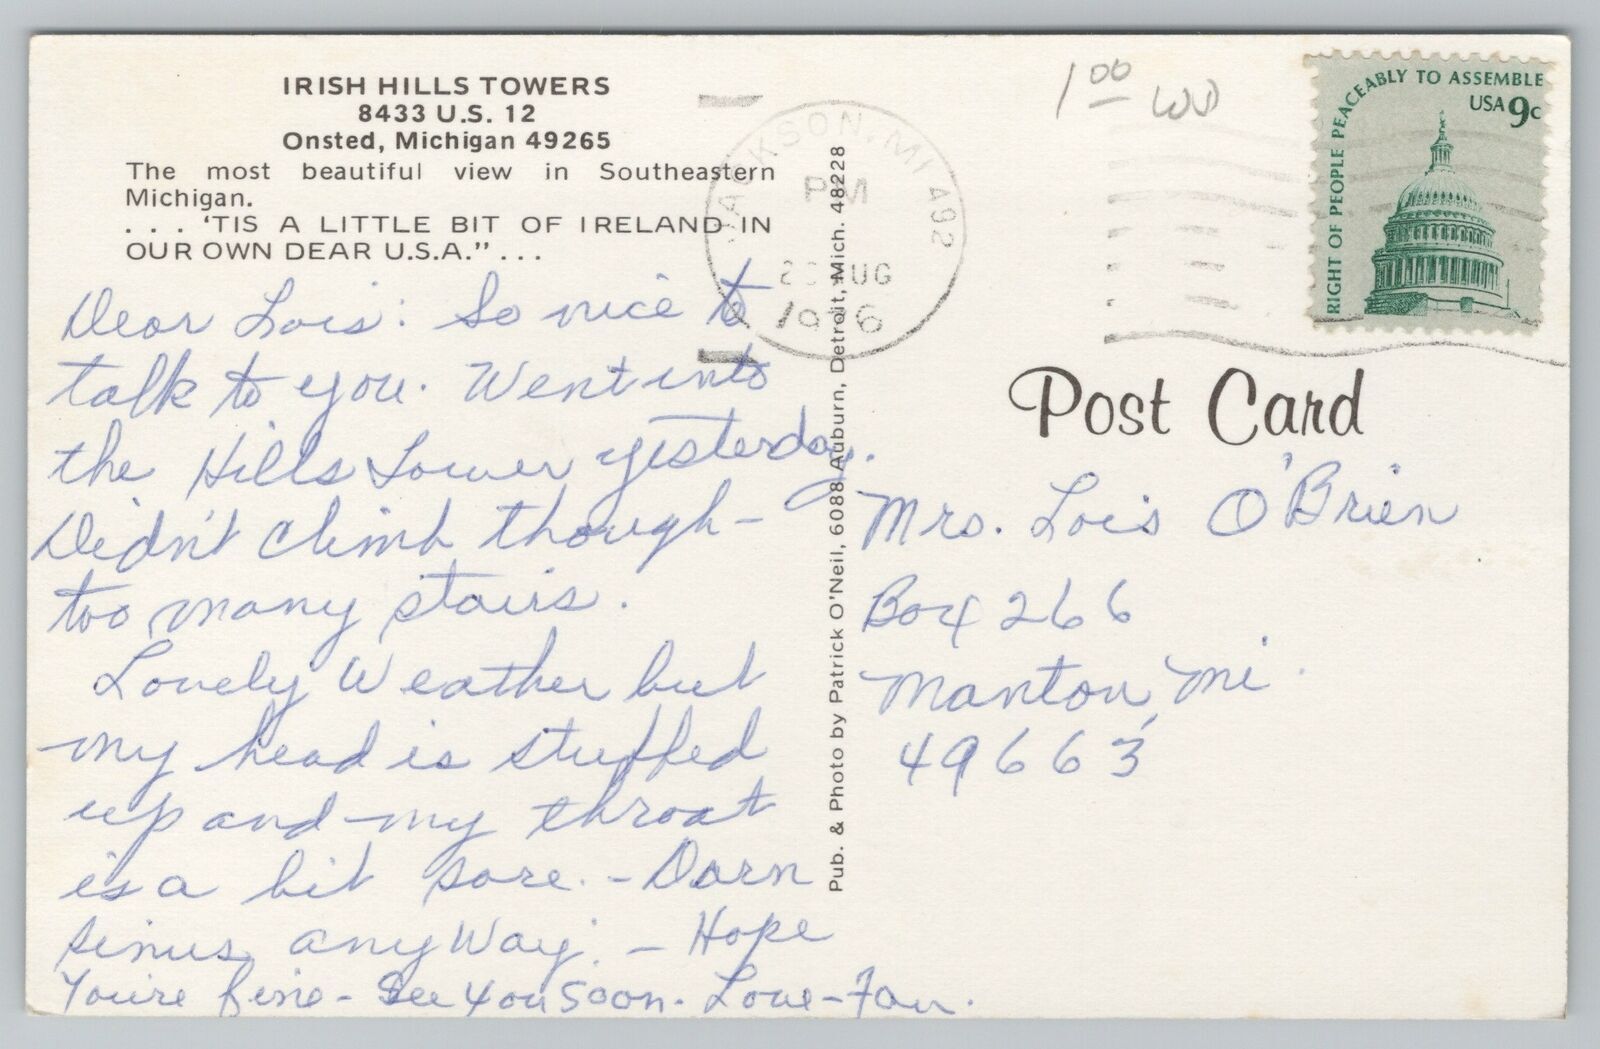 IRISH HILLS TOWERS
8433 U.S. 12
Onsted, Michigan 49265
The most beautiful view in Southeastern
Michigan.
. . . 'TIS A LITTLE BIT OF IRELAND IN
OUR OWN DEAR U.S.A." . . .
Dear Lois: So nice to
talk to you. Went into
the Hills Tower yesterday.
Didn't climb though -
too many stairs.
Lovely Weather but
my head is stuffed
up and my throat
is a bit sore. - Darn
sinus anyway. - Hope
You're fine - See you soon. Love -
Pub. & Photo by Patrick O'Neil, 6088 Auburn, Detroit, Mich. 48228
JACKSON, MI 492
PM
AUG
1976
1 00 WD
RIGHT OF PEOPLE PEACEABLY TO ASSEMBLE
USA 9c
Post Card
Mrs. Lois O'Brien
Box 266
Manton, Mi.
49663